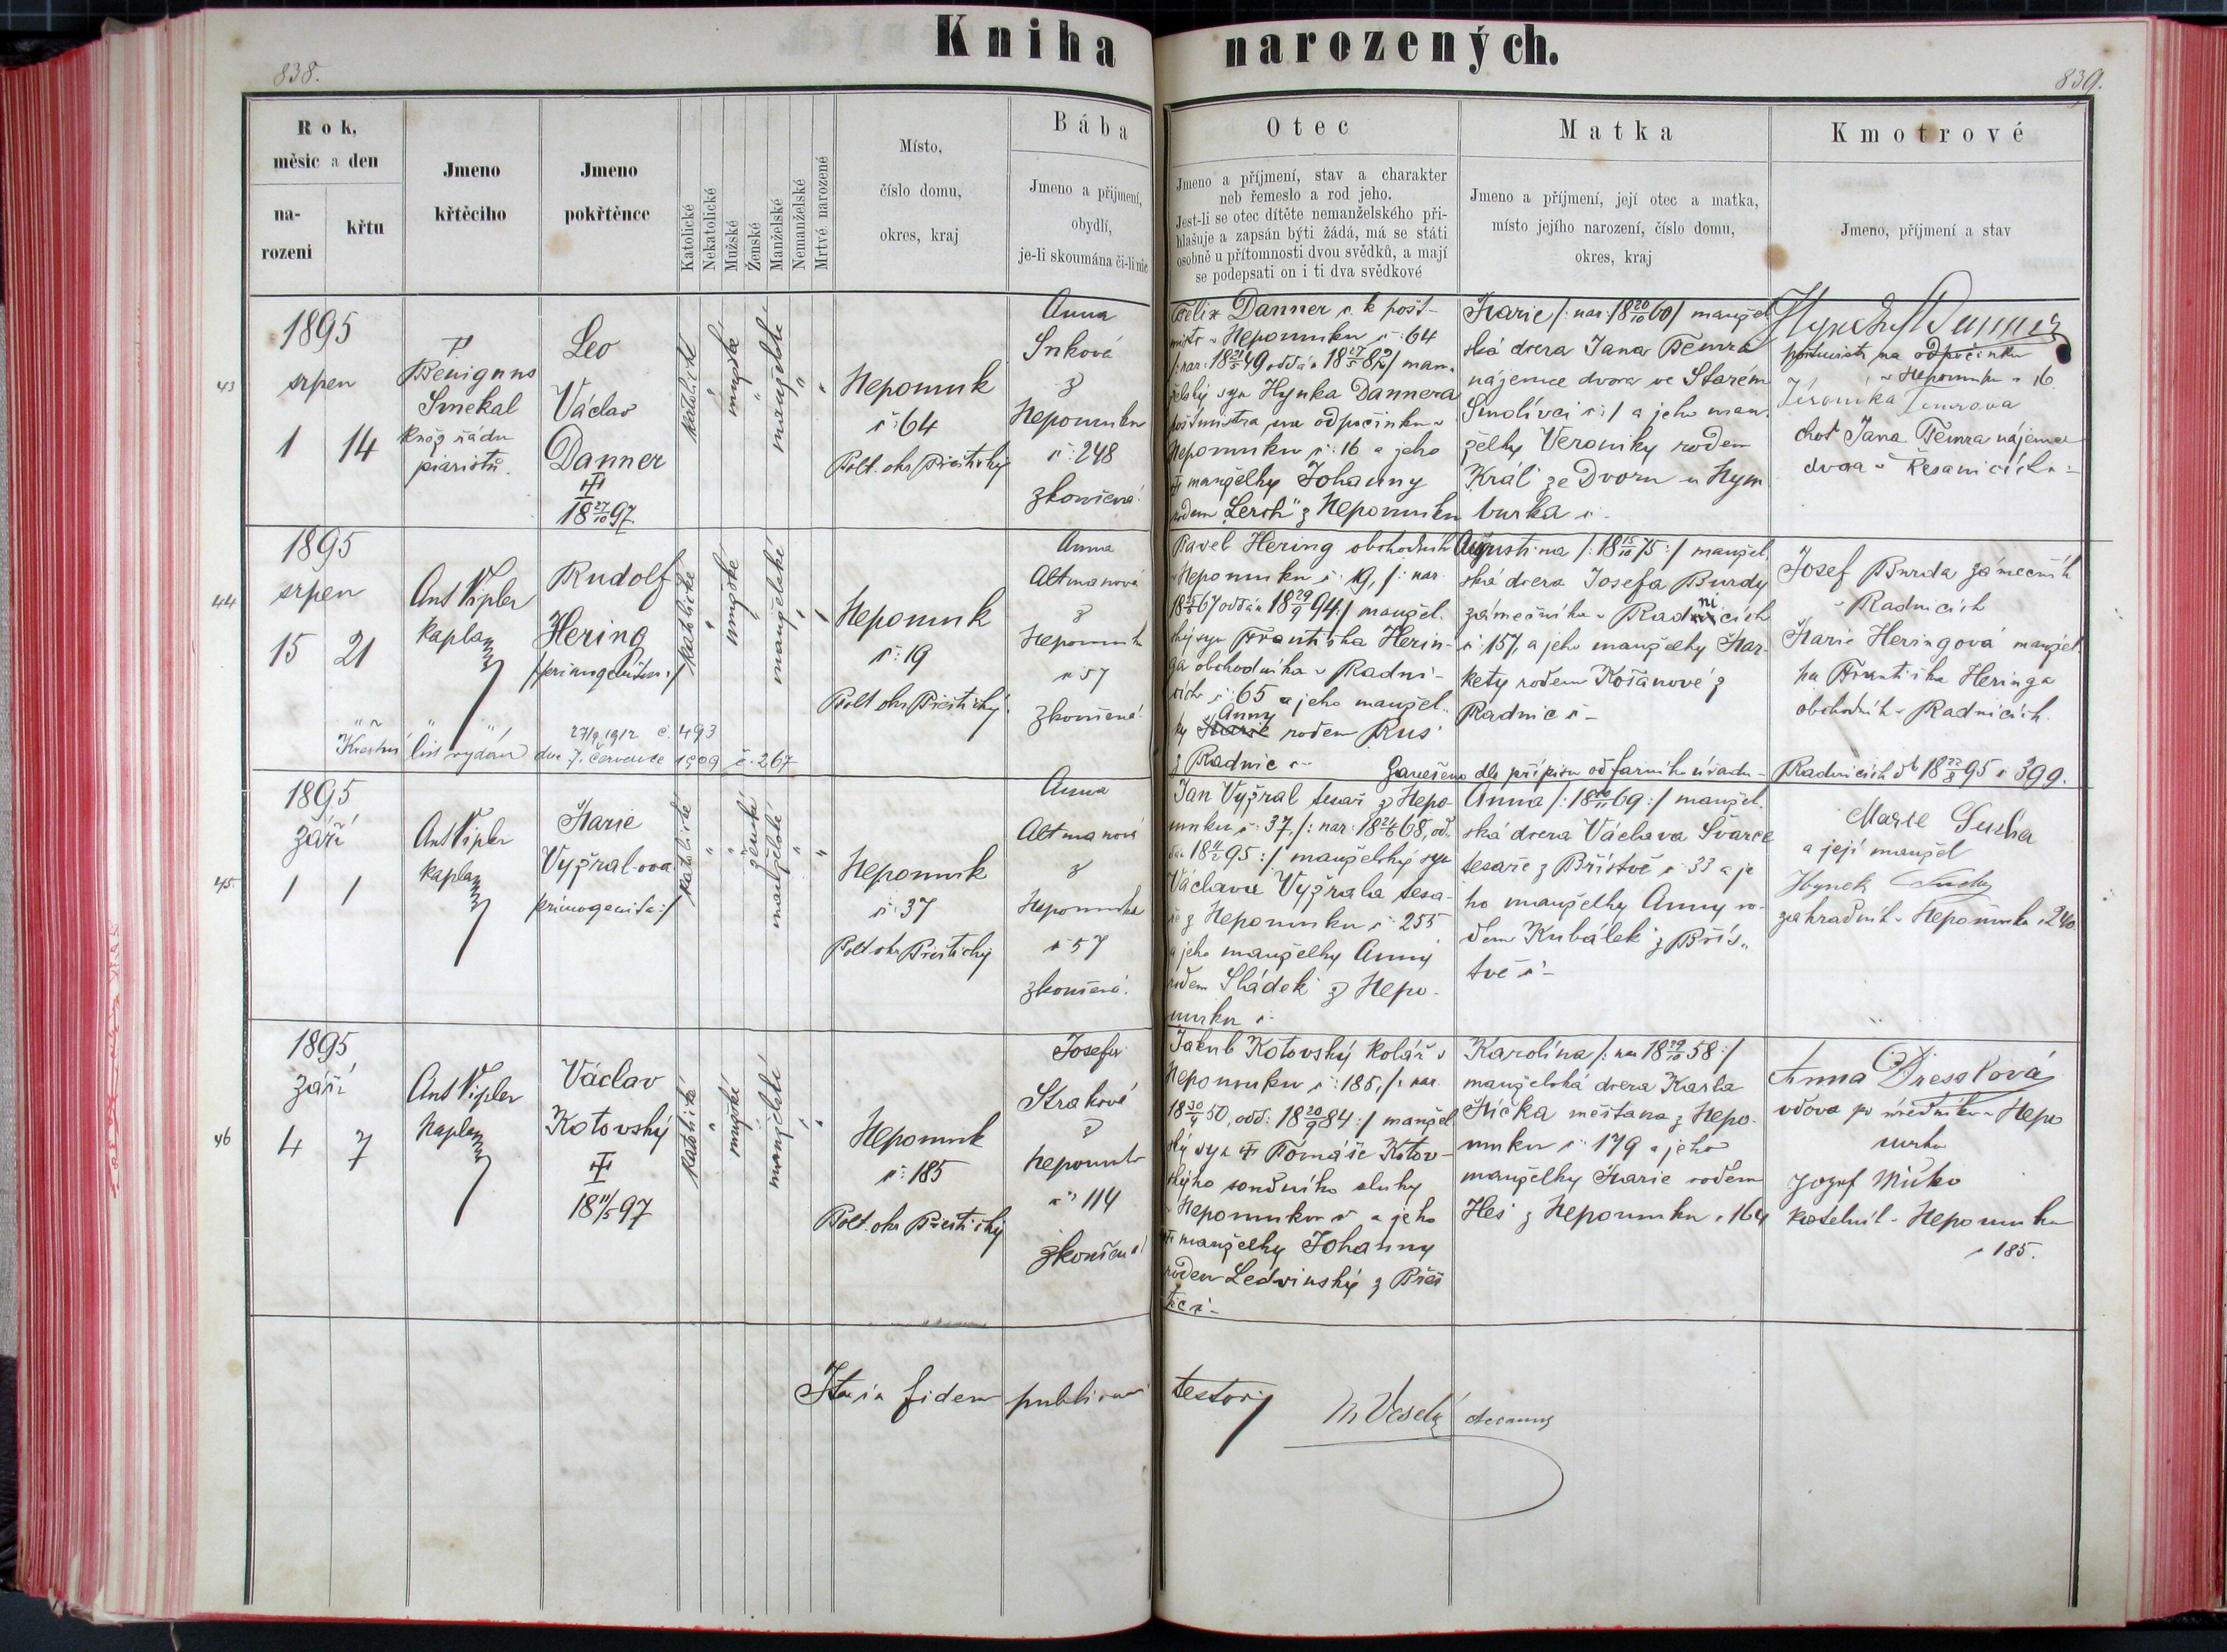 Kniha narozených.
838.
839.
Rok,
měsíc a den
na-
rozeni
křtu
Jmeno
křtěcího
Jmeno
pokřtěnce
Katolické
Nekatolické
Mužské
Ženské
Manželské
Nemanželské
Mrtvé narozené
Místo,
číslo domu,
okres, kraj
Bába
Jmeno a přijmení,
obydlí,
je-li skoumána či-li nic
Otec
Jmeno a příjmení, stav a charakter
neb řemeslo a rod jeho.
Jest-li se otec dítěte nemanželského při-
hlašuje a zapsán býti žádá, má se státi
osobně u přítomnosti dvou svědků, a mají
se podepsati on i ti dva svědkové
Matka
Jmeno a příjmení, její otec a matka,
místo jejího narození, číslo domu,
okres, kraj
Kmotrové
Jmeno, příjmení a stav
43
1895
srpen
1 14
Benignus
Smekal
kněz řádu
piaristů.
Leo
Václav
Danner
18 27/10 97
katolické
mužské
manželské
Nepomuk
č: 64
Polt. okr Přeštický
Anna
z
Nepomuku
č: 248
zkoušená.
Felix Danner c. k. pošt-
mistr v Nepomuku č: 64
/:nar: 18 21/5 49 oddán 18 27/5 82/ man-
želský syn Hynka Dannera
poštmistra na odpočinku v
Nepomuku č: 16 a jeho
manželky Johanny
rodem Lerch z Nepomuku
Marie /: nar: 18 20/10 60/ manžel
ská dcera Jana Temra
nájemce dvora ve Starém
Smolivci č: 1 a jeho man-
želky Veroniky rodem
Král ze Dvoru u Kym
burka č-
Hynek Danner
poštmistr na odpočinku
v Nepomuku č 16
choť Jana Temra nájemce
dvora v Řesanicích
44
1895
srpen
15 21
Ant Vipler
kaplan
Rudolf
Hering
/primogenitus:/
27/9 1912 č. 493
Křestní list vydán dne 7. července 1909 č. 267
katolické
mužské
manželské
Nepomuk
č: 19
Polt okr Přeštický.
Anna
Altmanová
z
Nepomuk
č 57
zkoušená.
Pavel Hering obchodník
v Nepomuku č: 19, /: nar.
oddán 18 29/9 94:/ manžel.
ský syn Františka Herin-
ga obchodníka v Radni-
cích č: 65 a jeho manžel-
Anny
ky Marie rodem Rus
z Radnic č-
Augustina /: 18 15/10 75:/ manžel
ská dcera Josefa Burdy
zámečníka v Radnicích
č: 157, a jeho manželky Mar-
kety rodem Košanové z
Radnic č-
Josef Burda zámečník
v Radnicích
Marie Heringová manžel
ka Františka Heringa
obchodník v Radnicích.
Zanešeno dle přípisu od farního úřadu v Radnicích dto 18 22/8 95 č 399.
45
1895
září
1 1
Ant Vipler
kaplan
Marie
Vyžral-ova
primogenita:/
katolické
ženské
manželské
Nepomuk
č: 37
Polt okr Přeštický
Anna
Altmanová
z
Nepomuku
č 57
zkoušená.
Jan Vyžral tesař z Nepo-
muku č: 37, /: nar: 18 24/6 68, od-
dán 18 11/2 95:/ manželský syn
Václava Vyžrala tesa-
ře z Nepomuku č: 255
a jeho manželky Anny
rodem Sládek z Nepo-
muku č-
Anna /: 69:/ manžel.
ská dcera Václava Švarce
tesaře z Bříství č 33 a je
ho manželky Anny ro-
dem Kubálek z Břís-
tvě č-
Marie Suchá
a její manžel
Hynek Suchý
zahradník v Nepomuku č 240.
46
1895
září
4 7
Ant Vipler
Kaplan
Václav
Kotovský
18 11/5 97
katolické
mužské
manželské
Nepomuk
č: 185
Polt. okr Přeštický
Josefa
Straková
z
Nepomuk
č: 114
zkoušená
Jakub Kotovský kolář v
Nepomuku č: 185, /: nar.
18 30/4 50, odd: 18 20/9 84:/ manžel
ský syn Tomáše Kotov-
ského soudního sluhy
v Nepomuku č a jeho
manželky Johanny
rodem Ledvinský z Přeš
tic č-
Karolína /: nar 18 29/10 58:/
manželská dcera Karla
Mička měšťana z Nepo-
muku č: 179 a jeho
manželky Marie rodem
Heš z Nepomuku č 164
Anna
vdova po úředníku v Nepo
muku
Kostelník v Nepomuku
č 185.
Ita in fidem publicam testor
M Veselý decanus